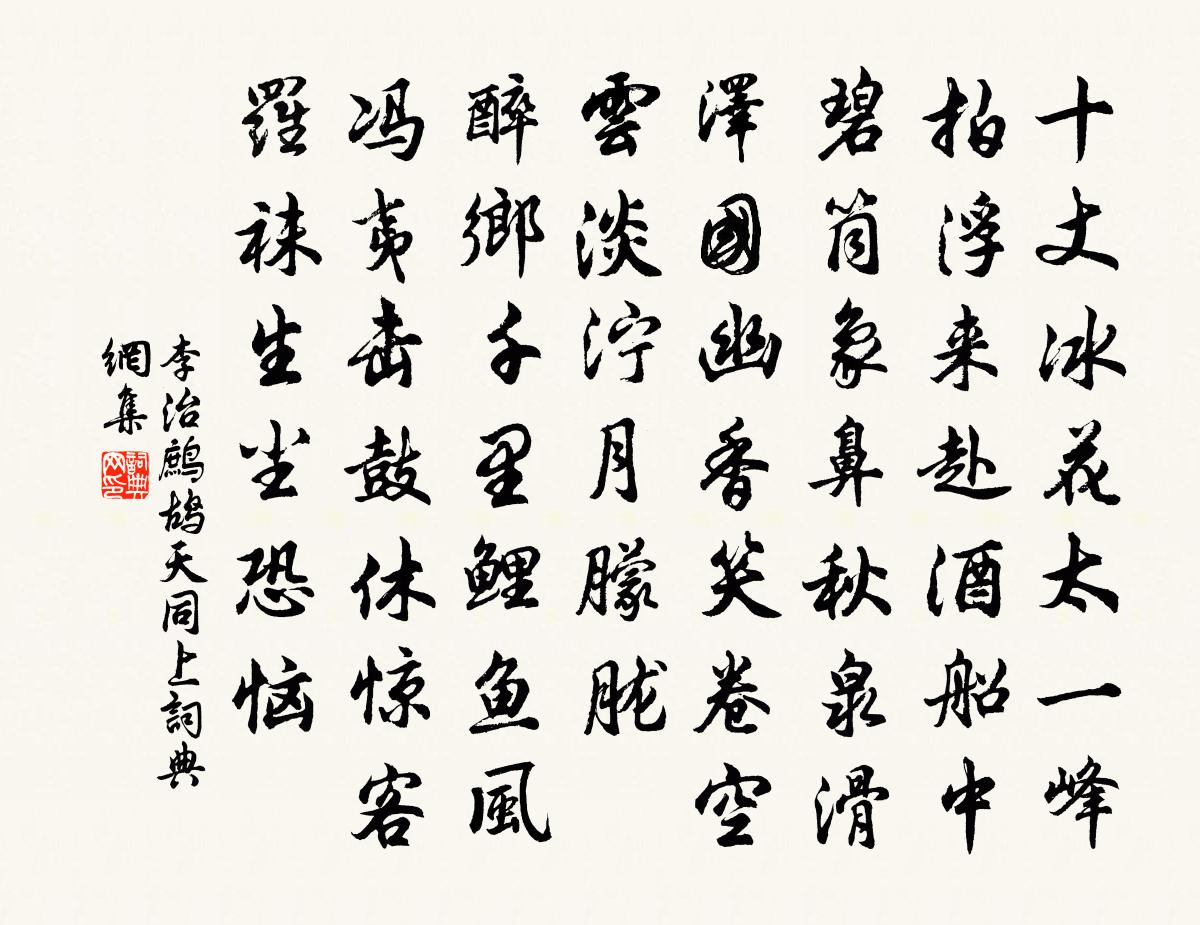 十丈冰花太一峰
拍浮来赴酒船中
碧筒象鼻秋泉滑
澤國幽香笑卷空
雲淡泞月朦朧
醉鄉千里鯉鱼風
冯夷击鼓休惊客
羅袜生尘恐恼
李治鷓鸪天同上詞典
網集
詞典
网印